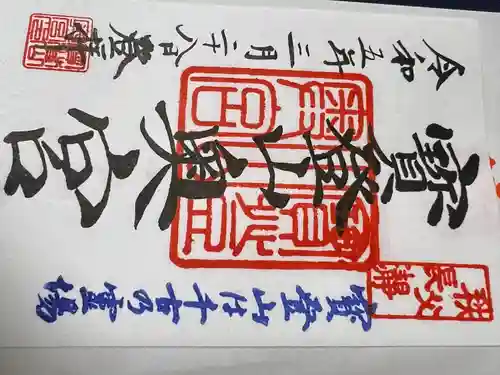 秩父
長瀞
寶登山は千古乃霊場
寶登山奥宮
令和五年三月二十八日登拝